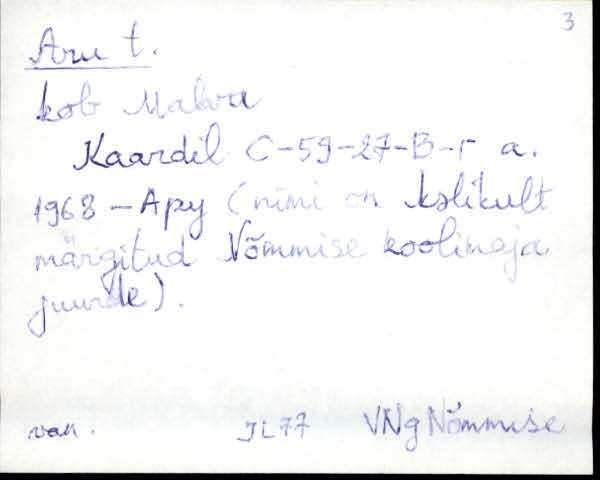 3
Aru t.
kob Malvu
Kaardil C-59-27-B-г a.
1968 - Ару (nimi on kslikult
märgitud Nõmmise koolimaja
juurde).
van. JL77 VNg Nõmmise